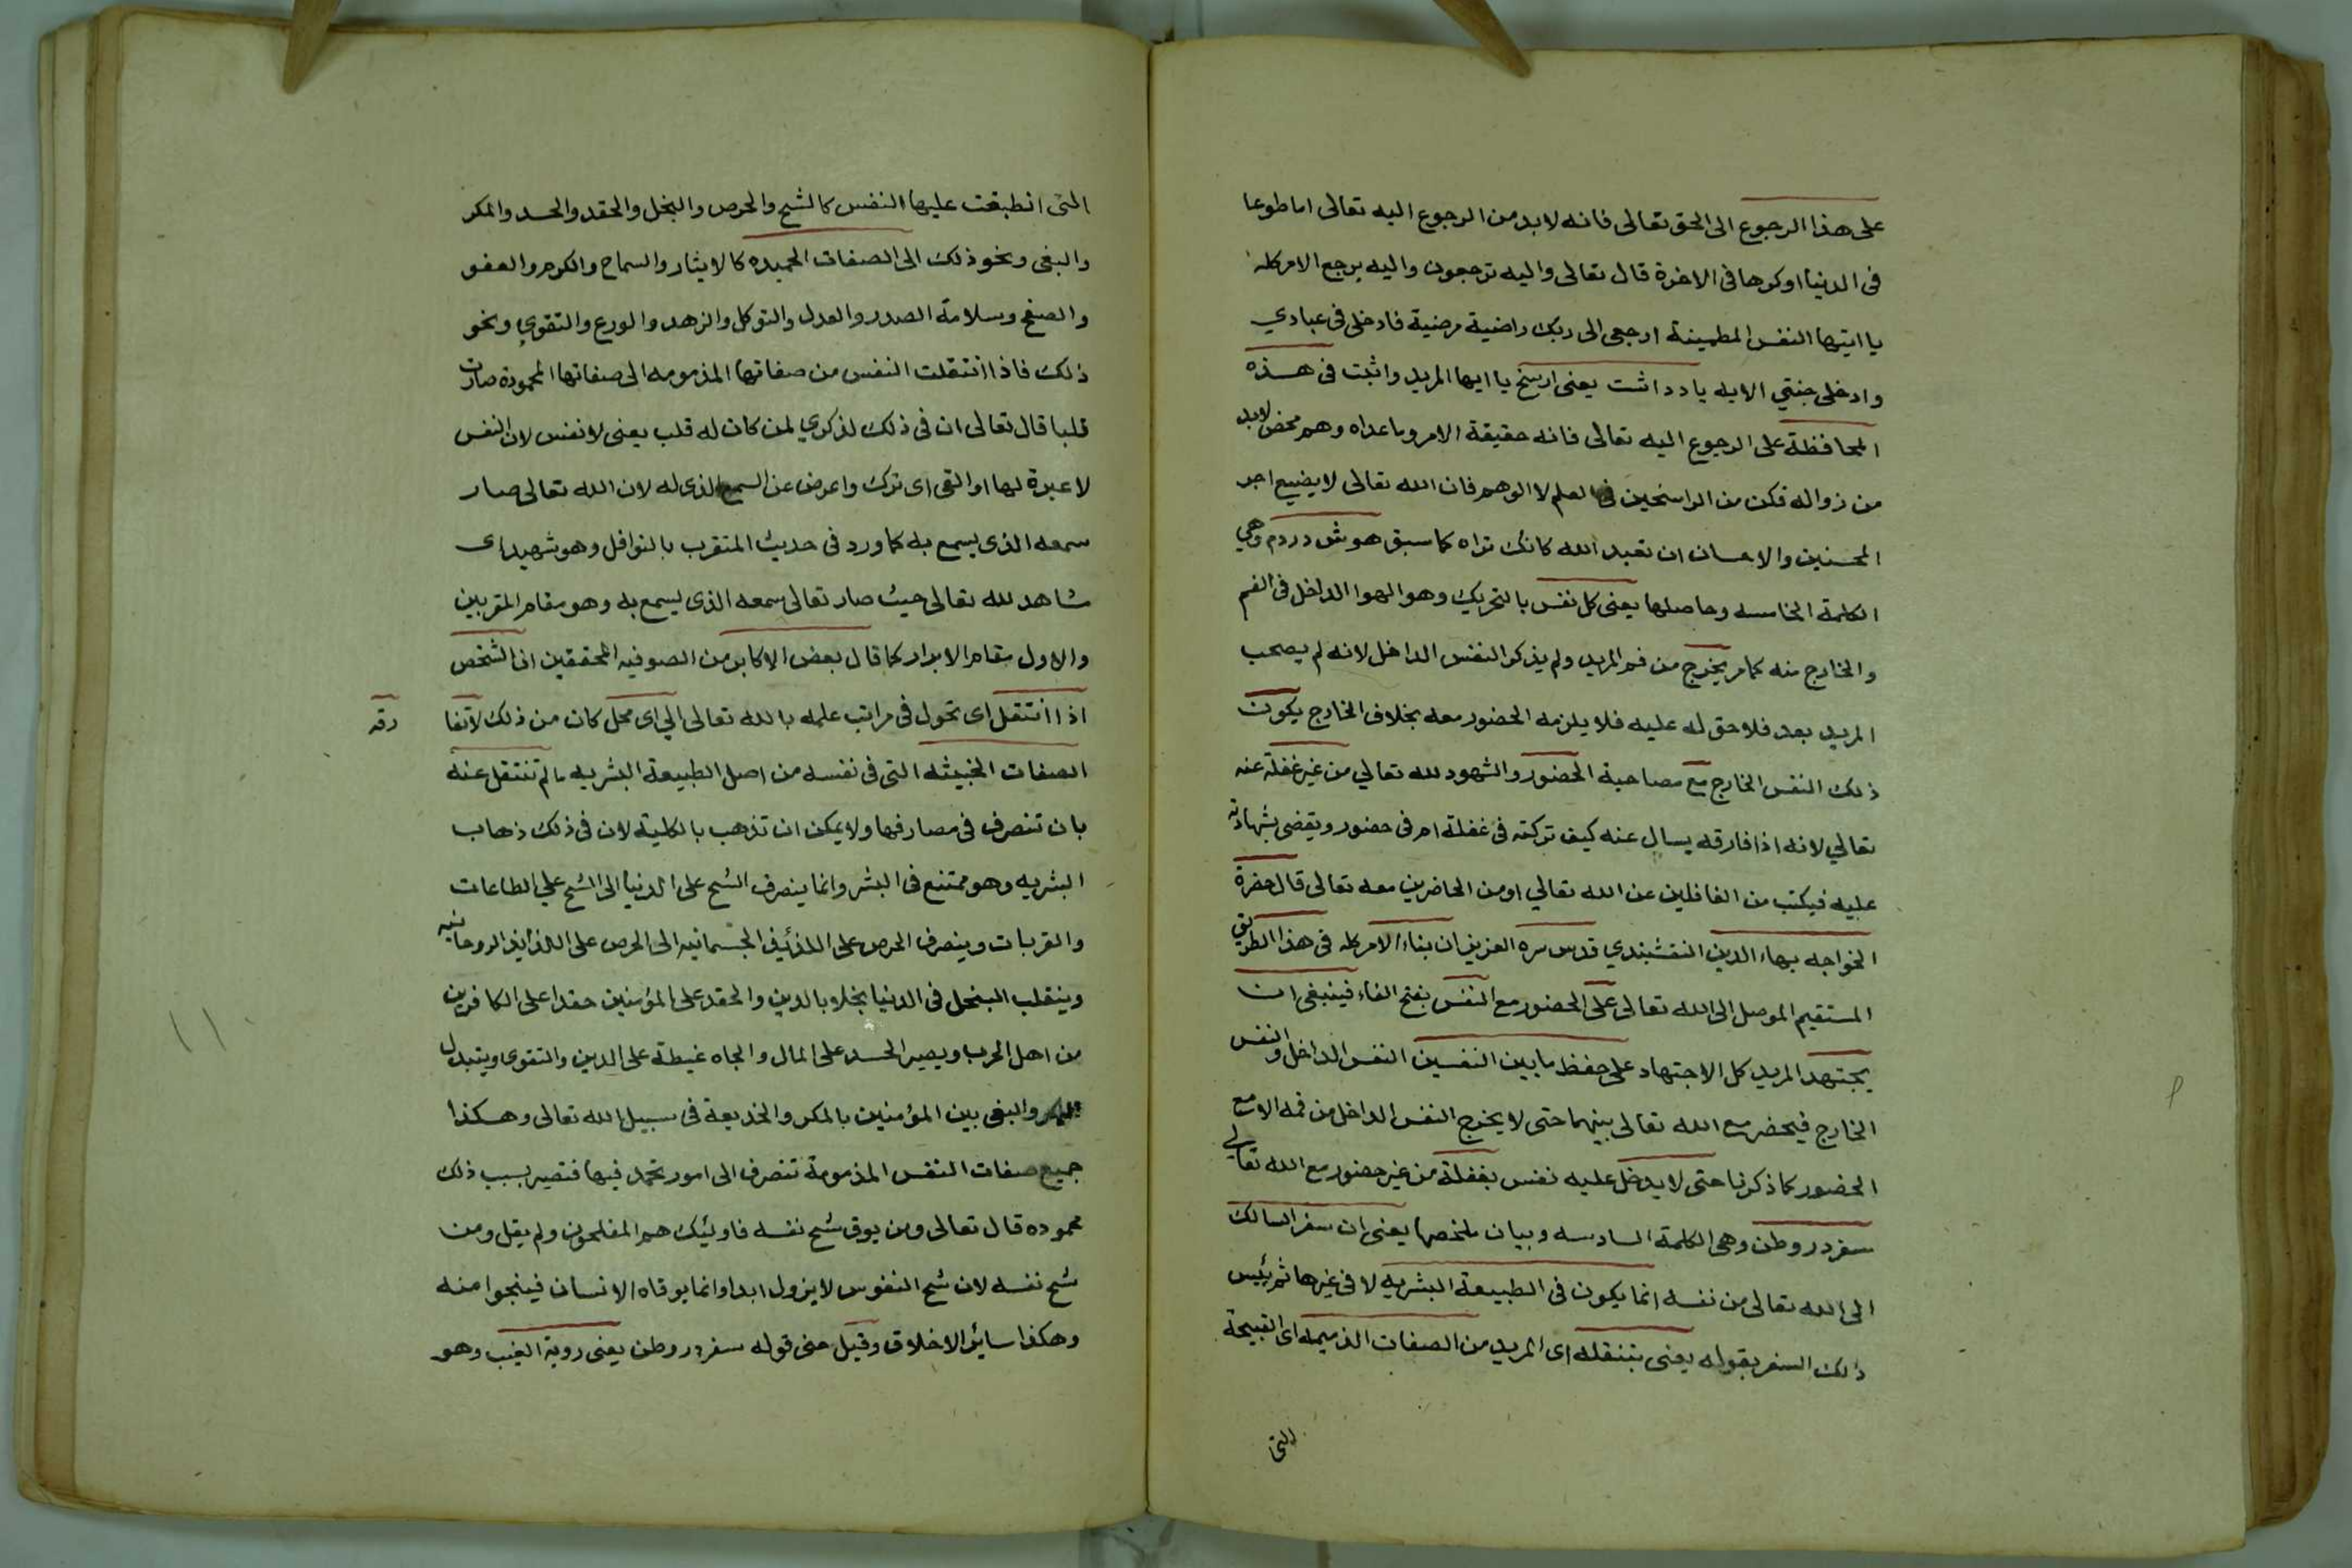 على هذا الرجوع الى الحق تعالى فانه لابد من الرجوع اليه تعالى اما طوعا
فى الدنيا اوكرها فى الاخرة قال تعالى واليه ترجعون واليه يرجع الامر كله
يا ايتها النفس المطمينة ارجعى الى ربك راضية مرضية فادخلى فى عبادي
وادخلى جنتي الايه ياد داشت يعنى ارسخ يا ايها المريد واثبت فى هذه
المحافظة على الرجوع اليه تعالى فانه حقيقة الامر وماعداه وهم محض لابد
من زواله فكن من الراسخين فى العلم لا الوهم فان الله تعالى لايضيع اجر
المحسنين والاحسان ان تعبد الله كانك تراه كما سبق هوش دردم وهي
الكلمة الخامسه وحاصلها يعنى كل نفس بالتحريك وهو الهوا الداخل فى الفم
والخارج منه كما مر يخرج من فم المريد ولم يذكر النفس الداخل لانه لم يصحب
المريد بعد فلاحق له عليه فلا يلزمه الحضور معه بخلاف الخارج يكون
ذلك النفس الخارج مع مصاحبة الحضور والشهود لله تعالي من غير غفلة عنه
تعالي لانه اذا فارقه يسال عنه كيف تركته فى غفلة ام فى حضور ويقضى بشهادته
عليه فيكتب من الغافلين عن الله تعالي اومن الحاضرين معه تعالى قال حضرة
الخواجه بهاء الدين النقشبندي قدس سره العزيز ان بناء الامر كله فى هذا الطريق
المستقيم الموصل الى الله تعالى على الحضور مع النفس بفتح الفاء فينبغى ان
يجتهد المريد كل الاجتهاد على حفظ ما بين النفسين النفس الداخل والنفس
الخارج فيحضر مع الله تعالى بينهما حتى لا يخرج النفس الداخل من فمه الا مع
الحضور كما ذكرنا حتى لا يدخل عليه نفس بغفلة من غير حضور مع الله تعالي
سفر در وطن وهى الكلمة السادسه وبيان ملخصها يعنى ان سفر السالك
الى الله تعالى من نفسه انما يكون فى الطبيعة البشريه لا فى غيرها ثم
ذلك السفر بقوله يعنى بتنقله اى المريد من الصفات الذميمه اى القبيحة
التى
التى انطبعت عليها النفس كالشح والحرص والبخل والحقد والحسد والمكر
والبغى ونحو ذلك الى الصفات الحميده كالايثار والسماح والكرم والعفو
والصفح وسلامة الصدر والعدل والتوكل والزهد والورع والتقوي ونحو
ذلك فاذا انتقلت النفس من صفاتها المذمومه الى صفاتها المحمودة صارت
قلبا قال تعالى ان فى ذلك لذكري لمن كان له قلب يعنى لا نفس لان النفس
لاعبرة لها او القى اى ترك واعرض عن السمع الذى له لان الله تعالى صار
سمعه الذى يسمع به كما ورد فى حديث المتقرب بالنوافل وهو شهيد اى
شاهد لله تعالى حيث صار تعالى سمعه الذى يسمع به وهو مقام المقربين
والاول مقام الابرار كما قال بعض الاكابر من الصوفيه المحققين ان الشخص
اذا انتقل اى تحول فى مراتب علمه بالله تعالى الي اى محل كان من ذلك لاتفا
رقه
الصفات الخبيثه التى فى نفسه من اصل الطبيعة البشريه مالم تنتقل عنه
بان تنصرف فى مصارفها ولايمكن ان تذهب بالكلية لان فى ذلك ذهاب
البشريه وهو ممتنع فى البشر وانما ينصرف الشح على الدنيا الى الشح علي الطاعات
والقربات وينصرف الحرص على اللذائذ الجسمانيه الى الحرص على اللذايذ الروحانيه
وينقلب البخل فى الدنيا بخلا بالدين والحقد على المؤمنين حقدا على الكافرين
من اهل الحرب ويصير الحسد على المال والجاه غبطة على الدين والتقوى ويتبدل
المكر والبغى بين المؤمنين بالمكر والخديعة فى سبيل الله تعالى وهكذا
جميع صفات النفس المذمومة تنصرف الى امور تحمد فيها فتصير بسبب ذلك
محموده قال تعالى ومن يوق شح نفسه فاوليك هم المفلحون ولم يقل ومن
شح نفسه لان شح النفوس لايزول ابدا وانما يوقاه الانسان فينجوا منه
وهكذا سائر الاخلاق وقيل معنى قوله سفر در وطن يعنى روية الغيب وهو
١١